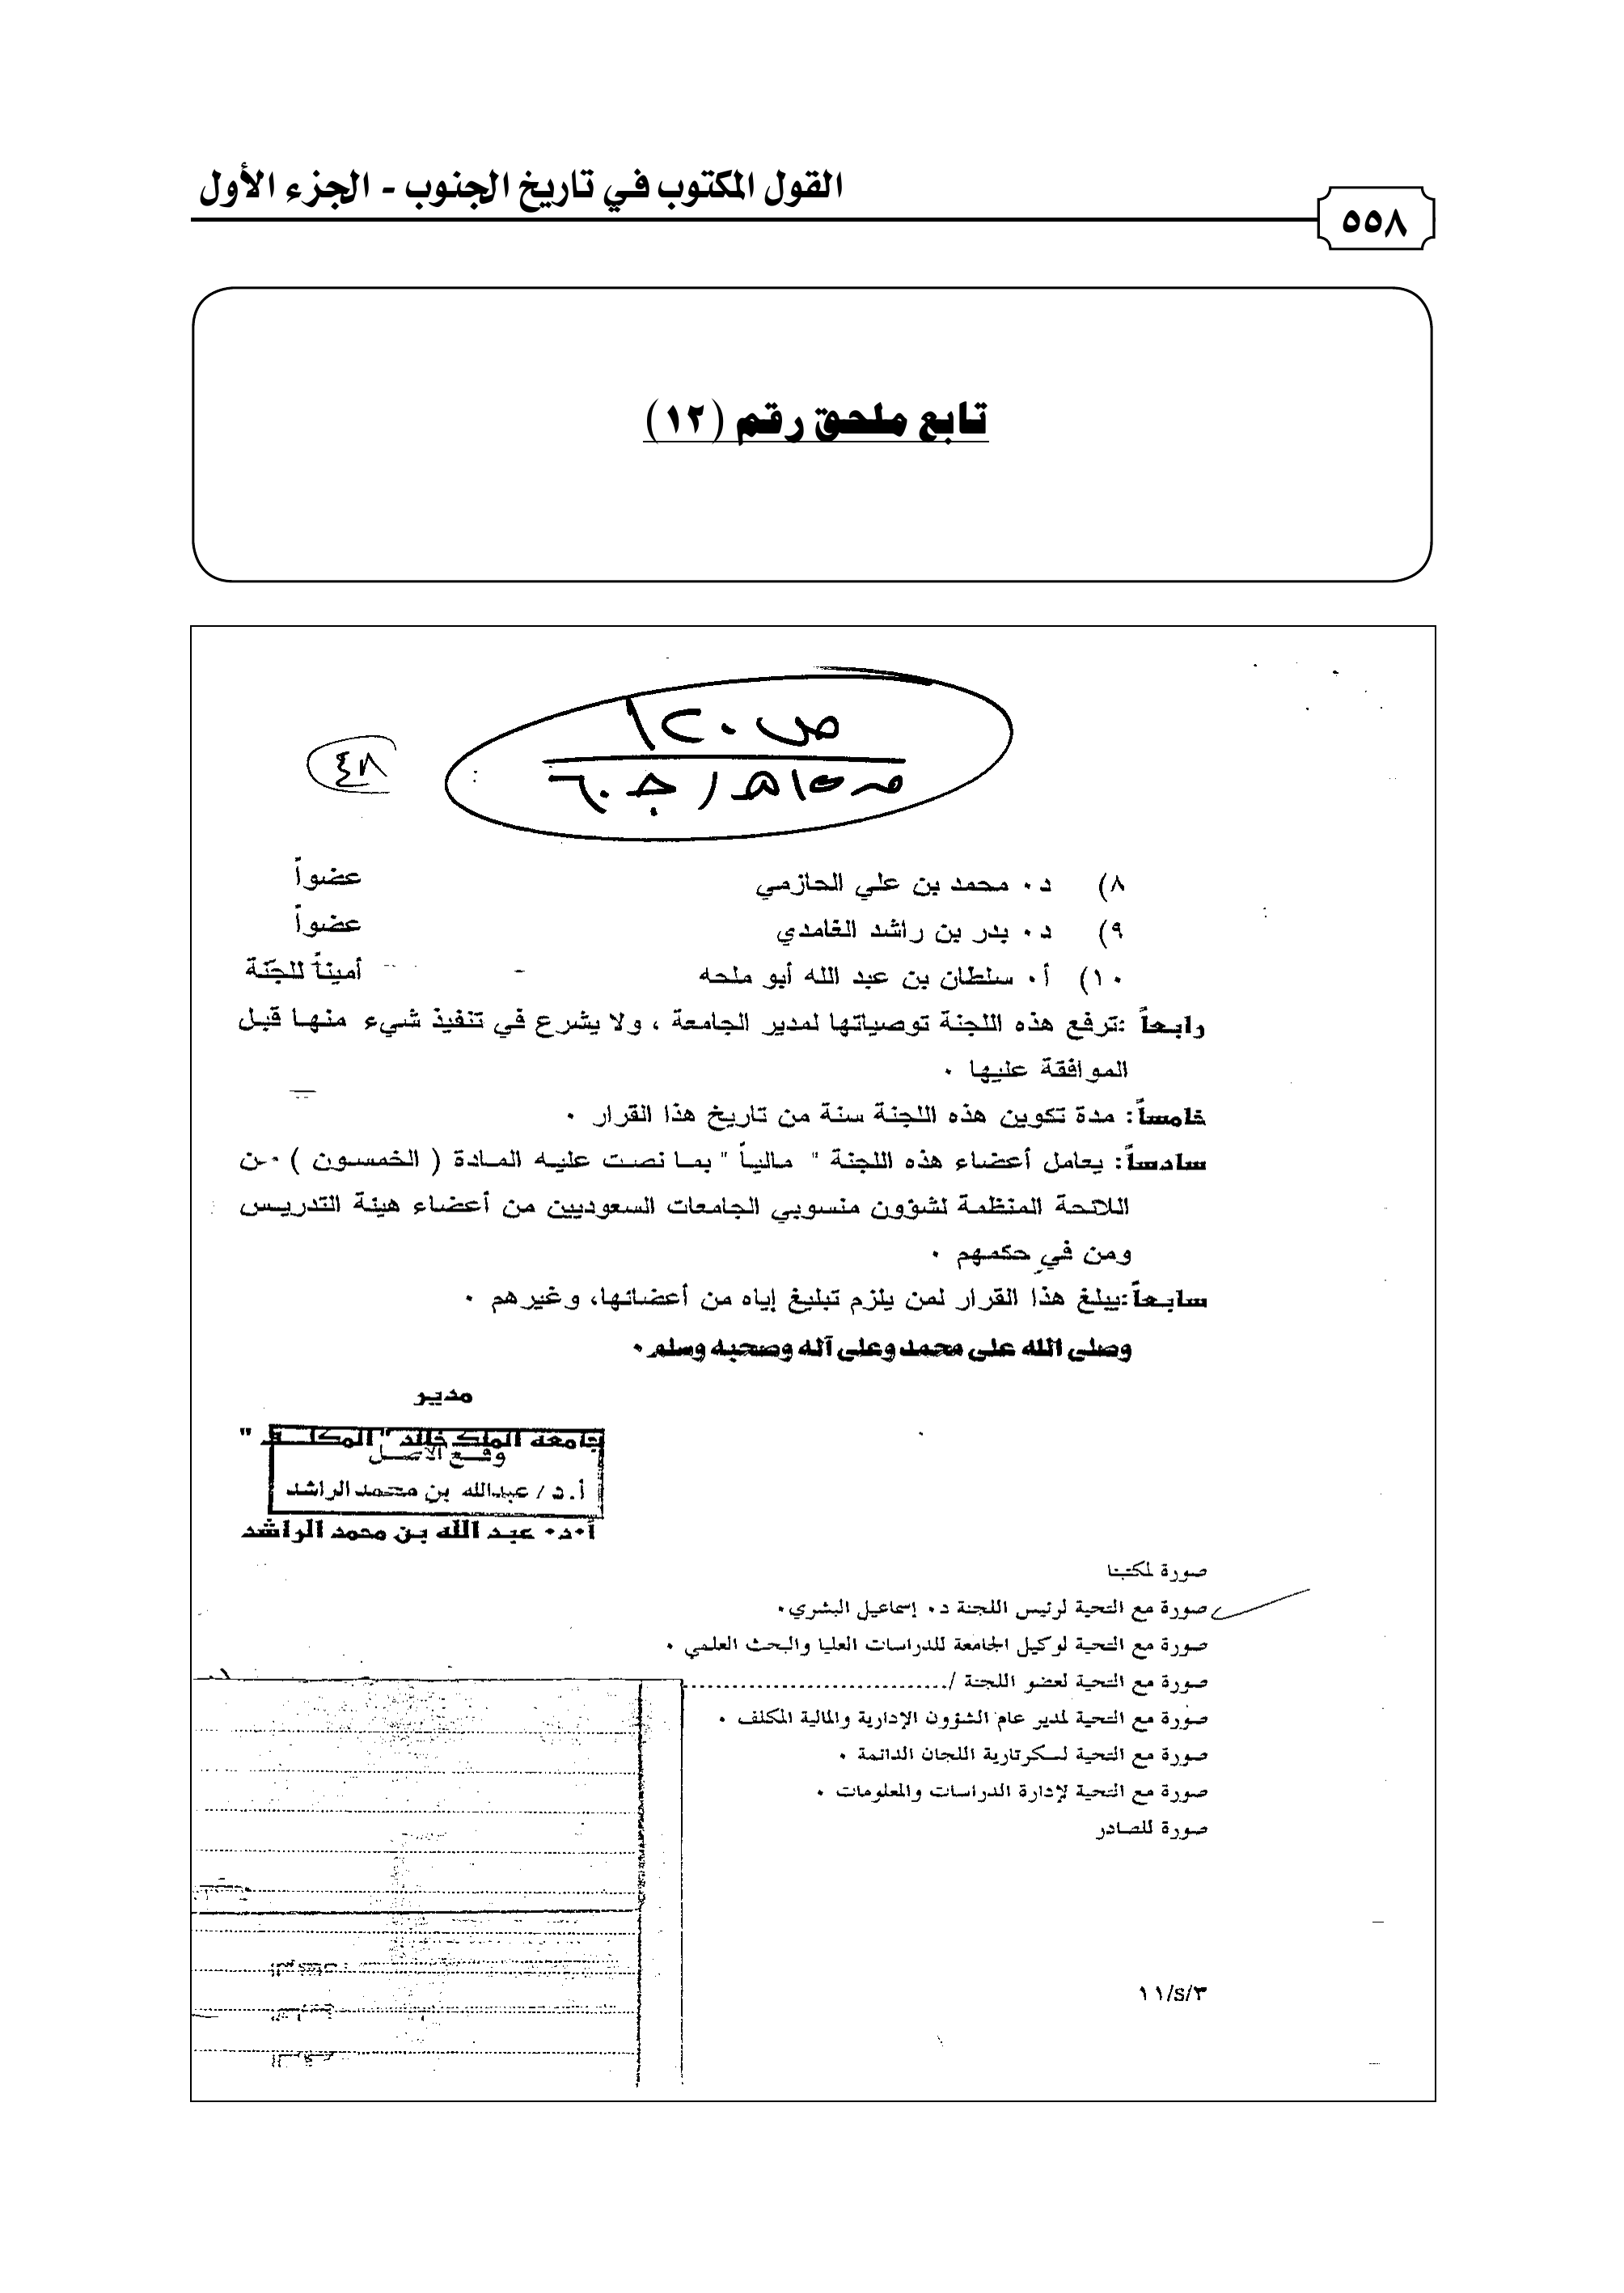 القول المكتوب في تاريخ الجنوب - الجزء الأول
٥٥٨
تابع ملحق رقم (١٢)
ص ١٢٠
٤٨
٨) د. محمد بن علي الحازمي عضواً
٩) د. بدر بن راشد الغامدي عضواً
١٠) أ. سلطان بن عبد الله أبو ملحه - أميناً للجنة
رابعاً :ترفع هذه اللجنة توصياتها لمدير الجامعة ، ولا يشرع في تنفيذ شيء منها قبل
الموافقة عليها .
خامساً: مدة تكوين هذه اللجنة سنة من تاريخ هذا القرار .
سادساً: يعامل أعضاء هذه اللجنة " مالياً " بما نصت عليه المادة ( الخمسون ) من
اللائحة المنظمة لشؤون منسوبي الجامعات السعوديين من أعضاء هيئة التدريس
ومن في حكمهم .
سابعاً:يبلغ هذا القرار لمن يلزم تبليغ إياه من أعضائها، وغيرهم .
وصلى الله على محمد وعلى آله وصحبه وسلم .
مدير
جامعة الملك خالد " المكلف "
وقع الأصل
أ.د / عبدالله بن محمد الراشد
أ.د. عبد الله بن محمد الراشد
صورة لمكتبنا
صورة مع التحية لرئيس اللجنة د. إسماعيل البشري.
صورة مع التحية لوكيل الجامعة للدراسات العليا والبحث العلمي .
صورة مع التحية لعضو اللجنة /..............................
صورة مع التحية لمدير عام الشؤون الإدارية والمالية المكلف .
صورة مع التحية لسكرتارية اللجان الدائمة .
صورة مع التحية لإدارة الدراسات والمعلومات .
صورة للصادر
١١/s/٣